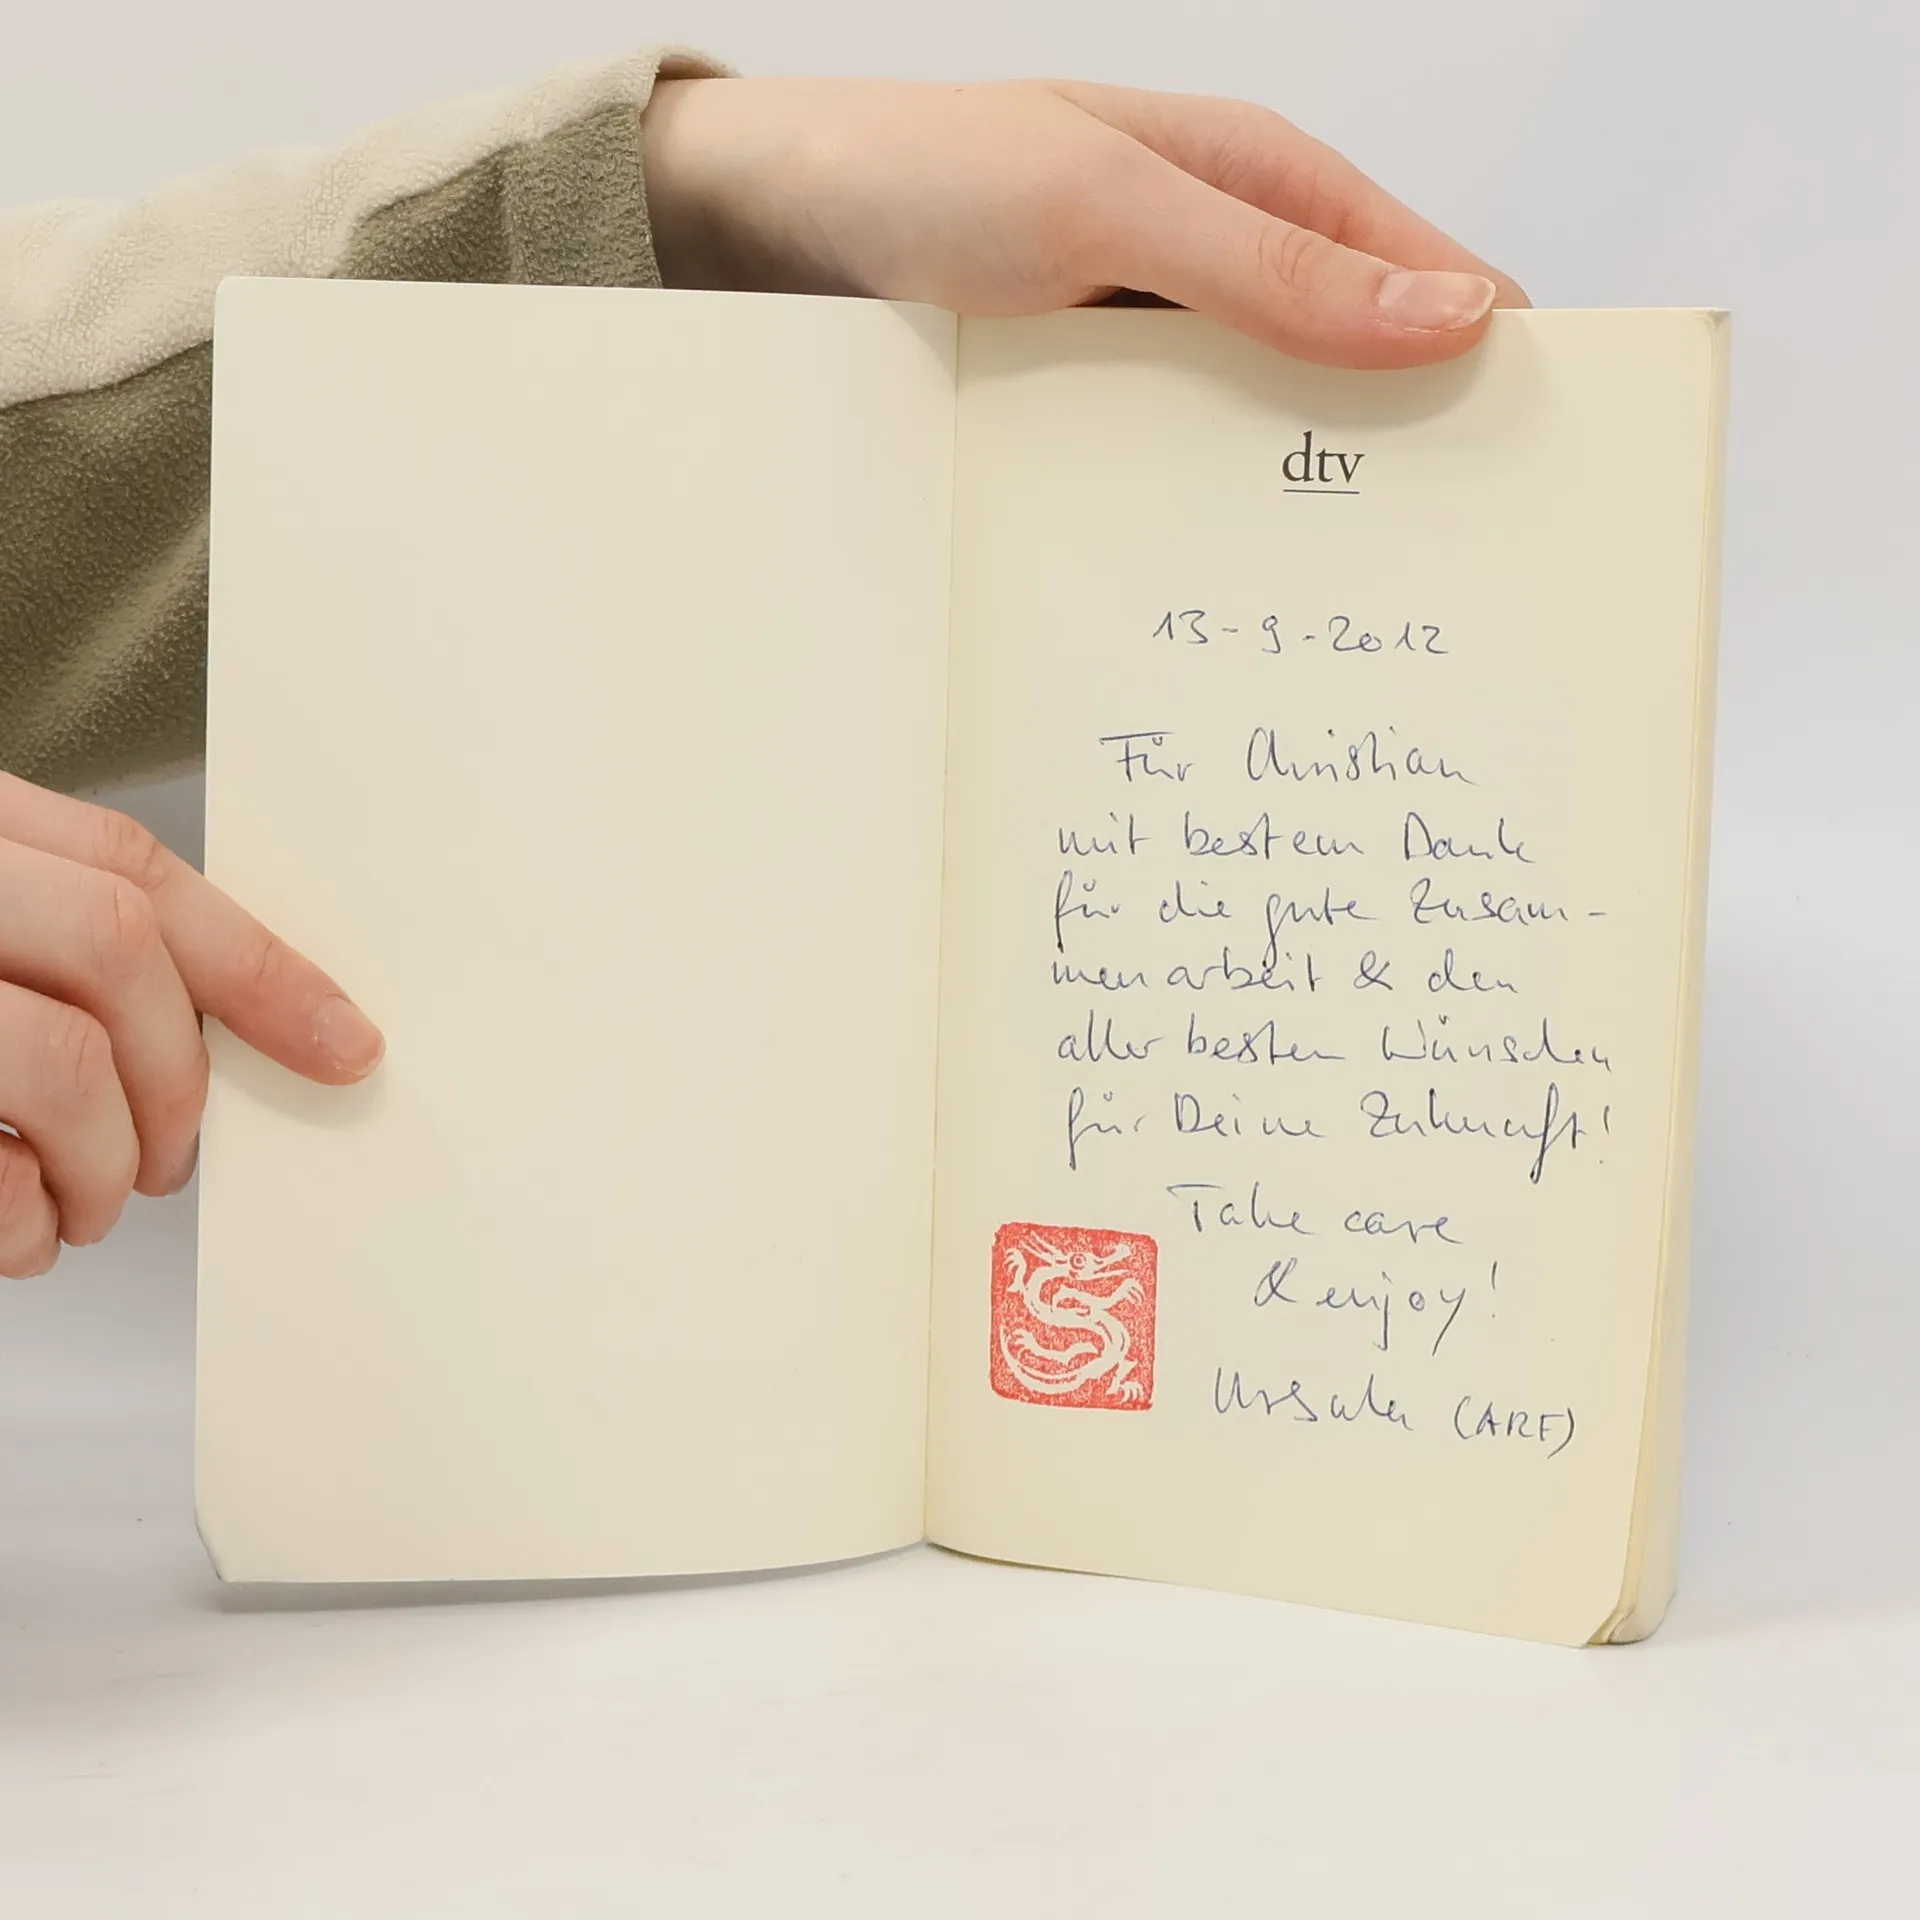 dtv
13-9-2012
Für Christian
mit bestem Dank
für die gute Zusam-
menarbeit & den
aller besten Wünschen
für Deine Zukunft!
Take care
& enjoy!
Ursula (ARF)